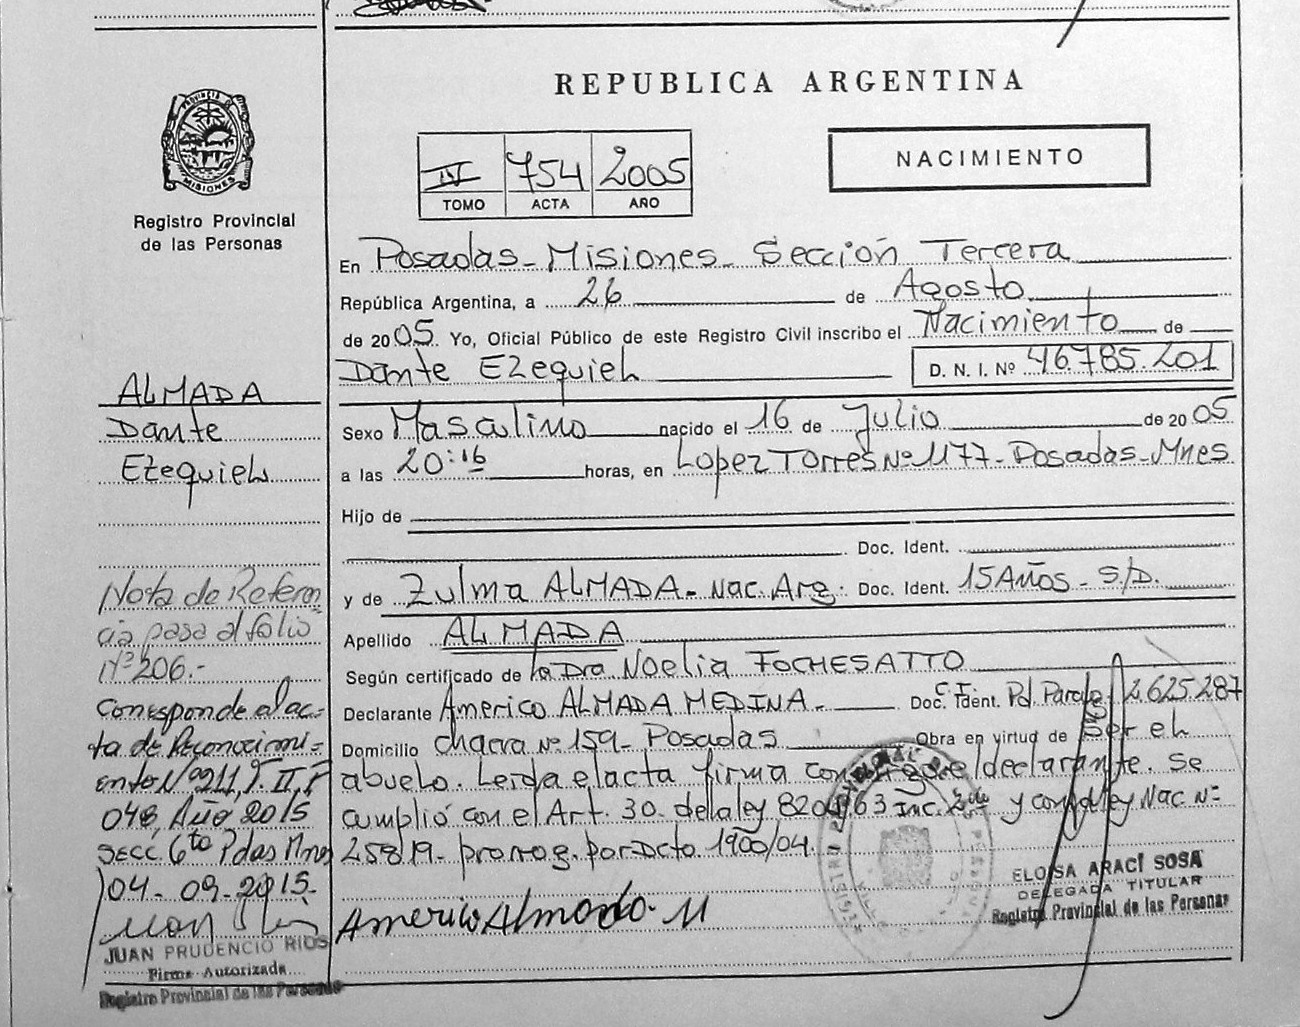 REPUBLICA ARGENTINA
PROVINCIA D
MISIONES
Registro Provincial
de las Personas
IV 754 2005
TOMO ACTA AÑO
NACIMIENTO
En Posadas - Misiones - Sección Tercera
República Argentina, a 26 de Agosto
de 2005. Yo, Oficial Público de este Registro Civil inscribo el Nacimiento de
Dante Ezequiel D. N. I. Nº 46.785.201
Sexo Masculino nacido el 16 de Julio de 2005
a las 20:16 horas, en Lopez Torres Nº 1177 - Posadas - Mnes
Hijo de
Doc. Ident.
y de Zulma ALMADA - Nac. Arg. Doc. Ident. 15 Años - S/D.
Apellido ALMADA
Según certificado de la Dra Noelia FOCHESATTO
Declarante Americo ALMADA MEDINA - Doc. Ident. C.I. Pol. 2.625.287
Domicilio chacra Nº 159 - Posadas Obra en virtud de ser el
abuelo. Leida el acta firma el declarante. Se
cumplió con el Art. 30. de la ley 8204/63 Inc. 2do y con ley Nac Nº
25819 - prorrog. por Dcto 1900/04.
Americo Almada M
ELOISA ARACÍ SOSA
DELEGADA TITULAR
Registro Provincial de las Personas
ALMADA
Dante
Ezequiel
Nota de Referen
cia pasa al folio
Nº 206.-
Corresponde al ac-
ta de Reconocimi-
ento Nº 211, T. II, F
048, Año 2015
SECC. 6to Pdas Mnes
04 - 09 - 2015.
JUAN PRUDENCIO RIOS
Firma Autorizada
Registro Provincial de las Personas